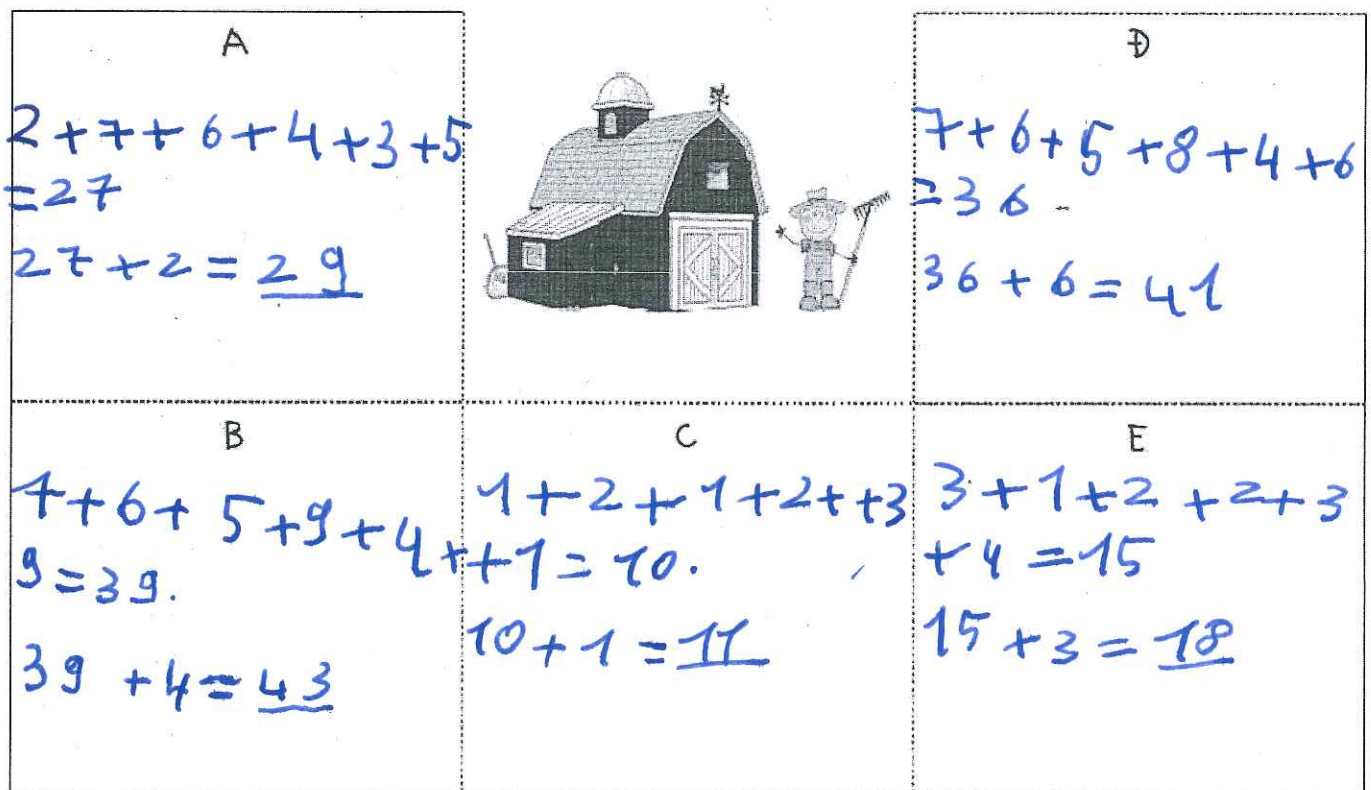 A
2+7+6+4+3+5
=27
27+2=29
D
7+6+5+8+4+6
=36
36+6=41
B
+6+5+9+4+
9=39.
39+4=43
C
1+2+1+2++3
+1=10.
10+1=11
E
3+1+2+2+3
+4=15
15+3=18